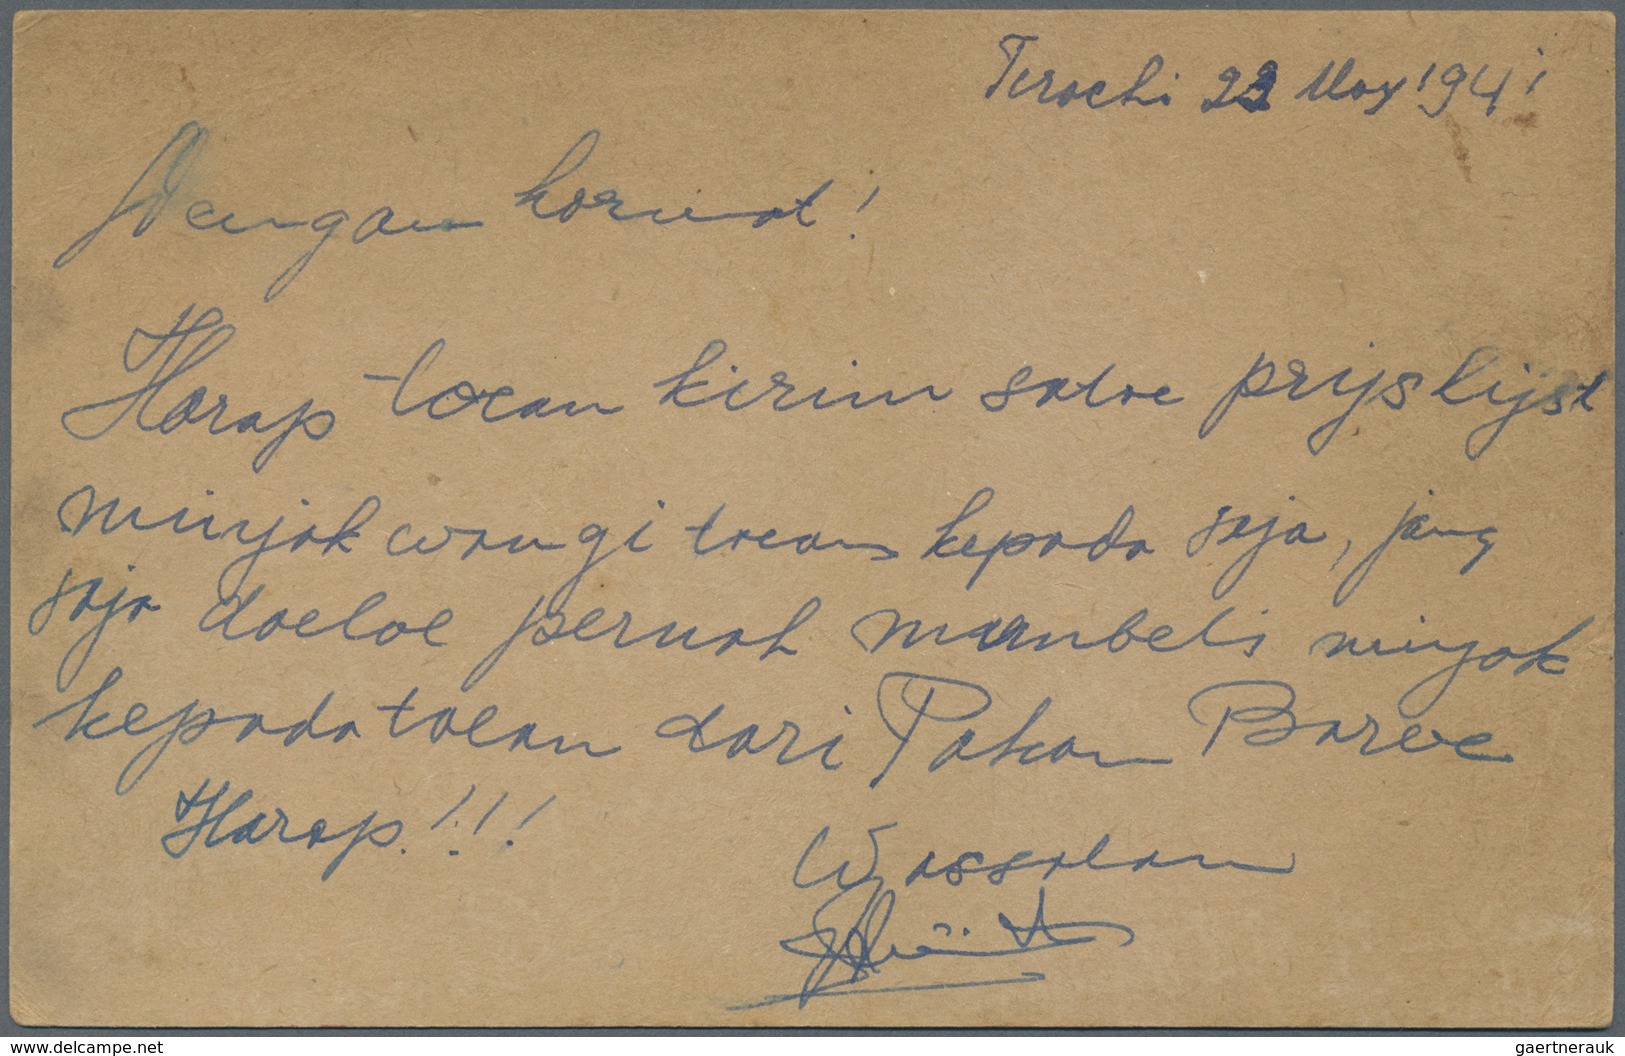 Terochi 22 May 1941
Dengan hormat!
Harap toean kirim satoe prijslijst
minjak wangi toean kepada saja, jang
saja doeloe pernah membeli minjak
kepada toean dari Pakan Baroe
Harap!!!
Wassalam
www.delcampe.net
gaertnerauk